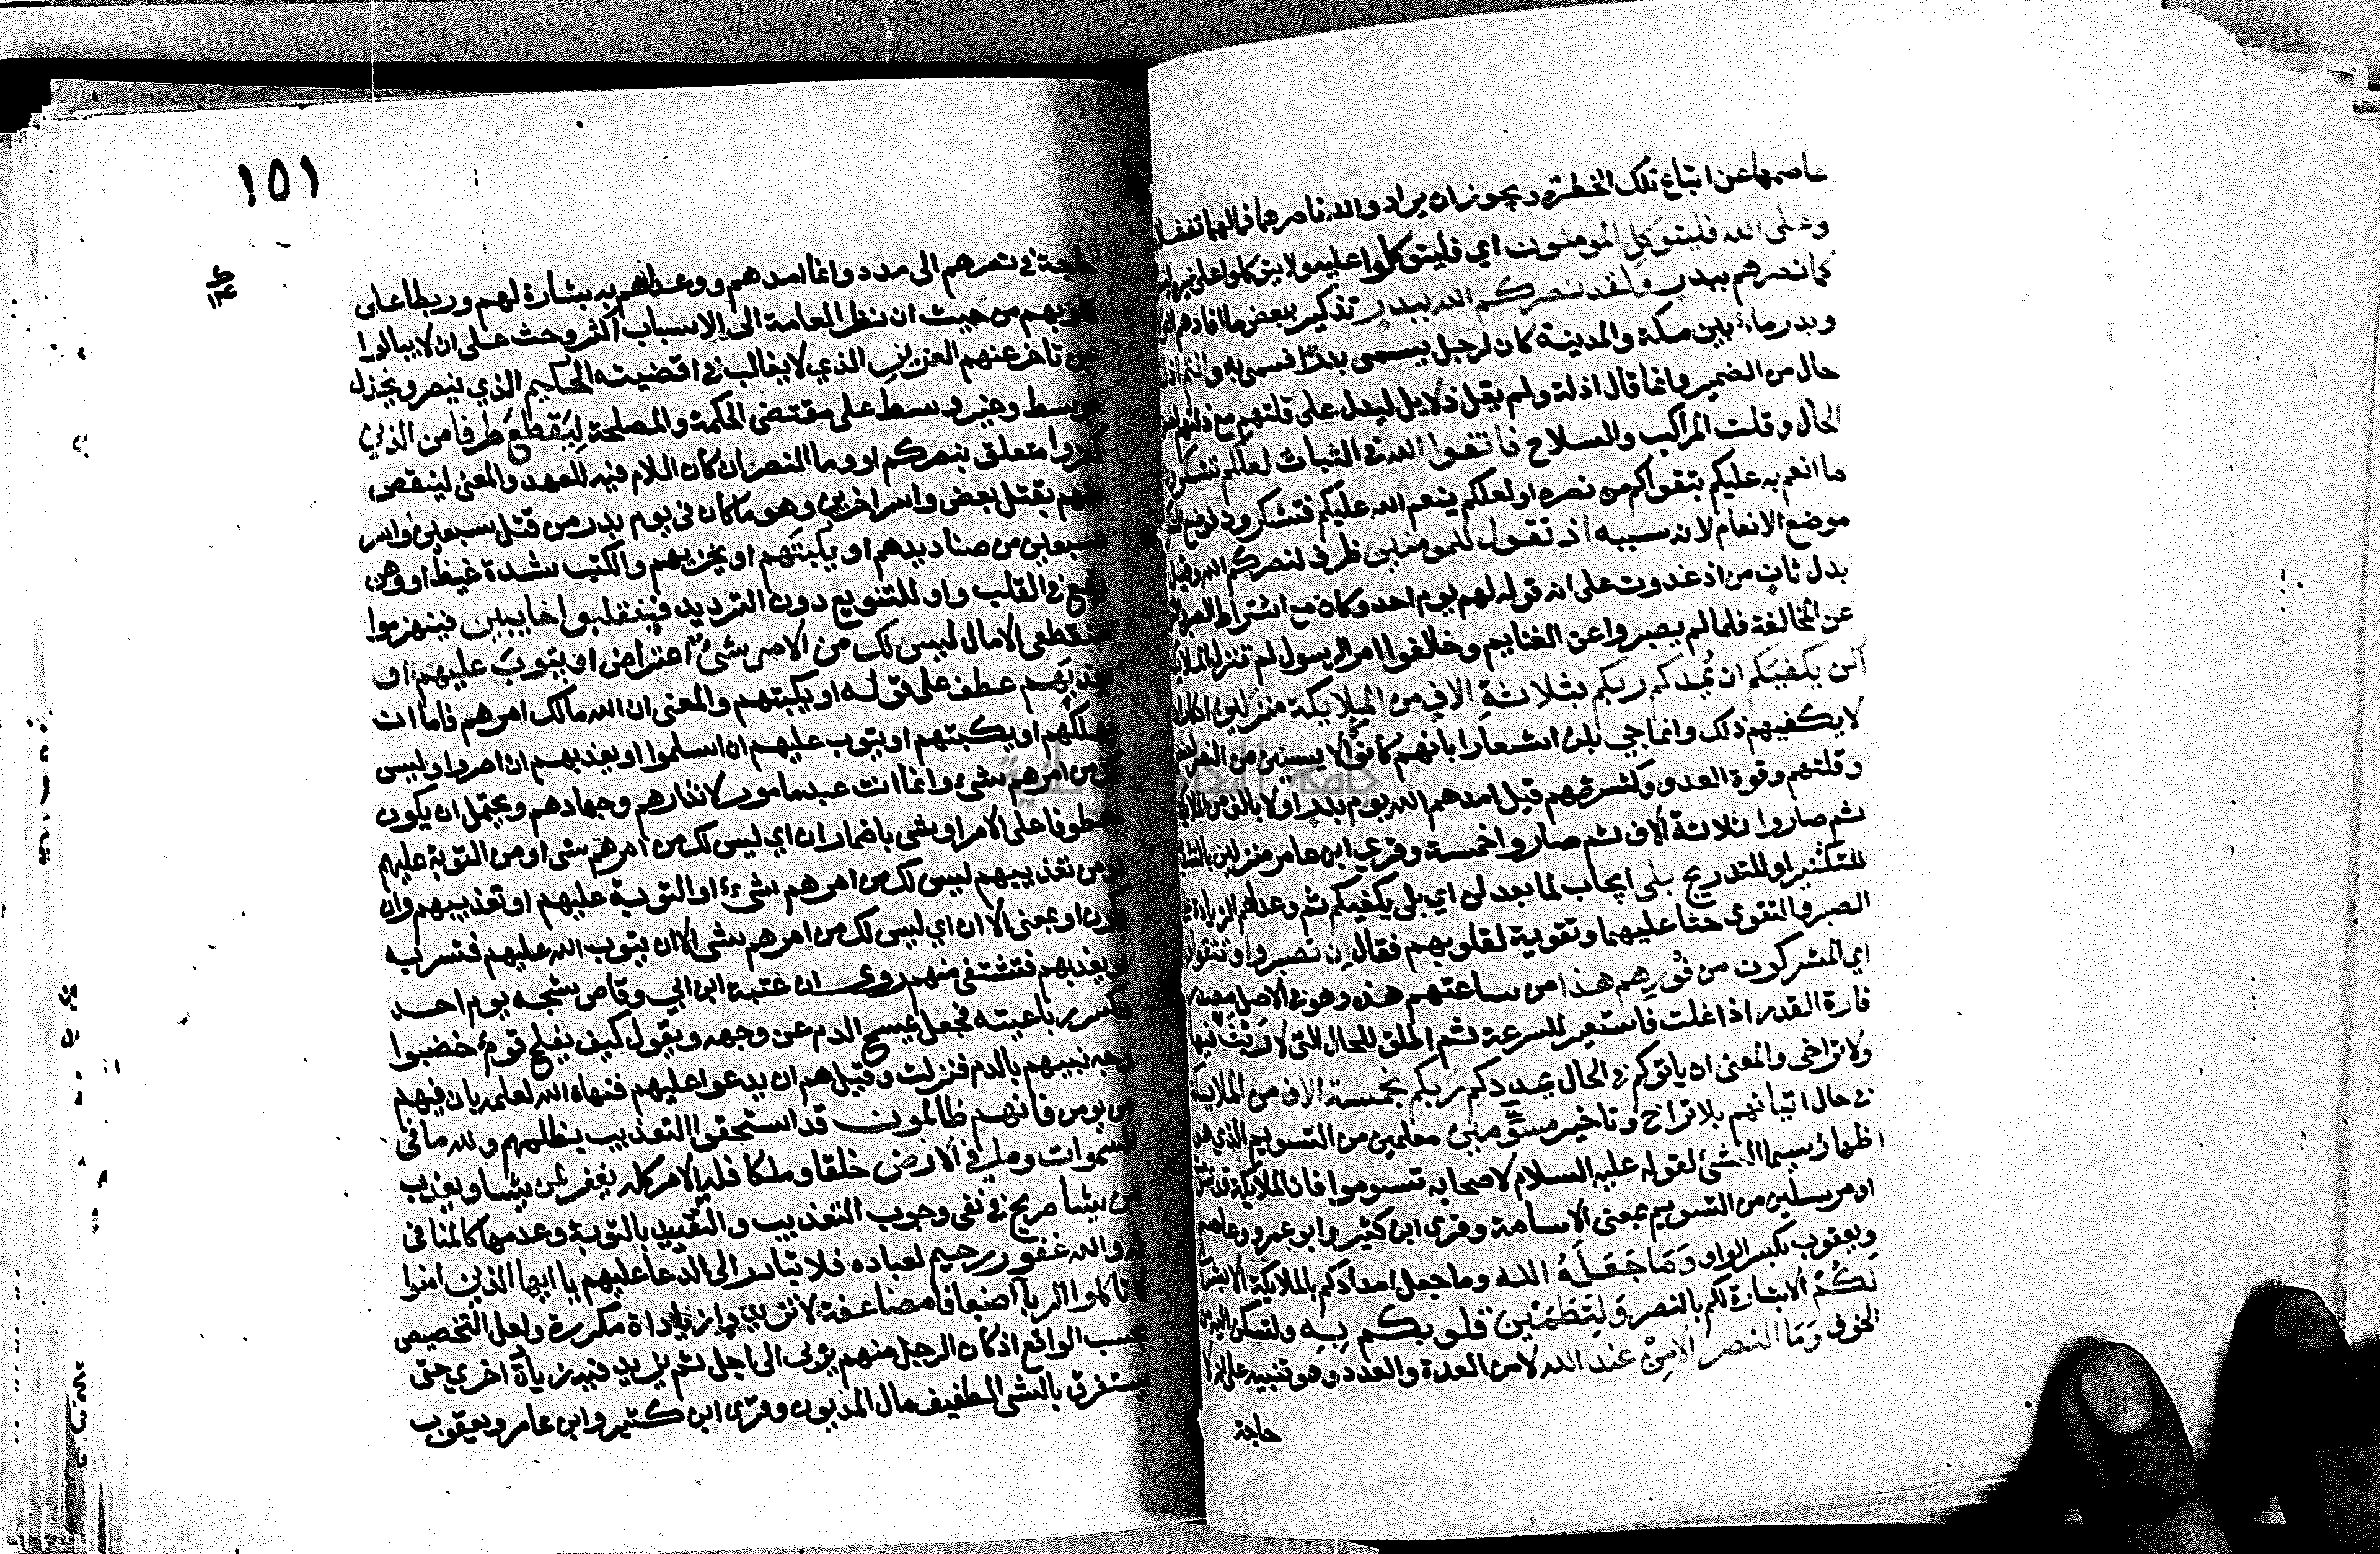 عاصمهما عن اتباع تلك الخطرة ويجوز ان يراد والله ناصرهما فمالهما تفشلان
وعلى الله فليتوكل المومنون اي فليتوكلوا عليه ولا يتوكلوا على غيره لينصرهم
كما نصرهم ببدر ولقد نصركم الله ببدر تذكير ببعض ما افادهم
وبدر ماء بين مكة والمدينة كان لرجل يسمى بدرا فسمى به وانتم اذلة
حال من الضمير وانما قال اذلة ولم يقل ذلايل ليدل على قلتهم مع ذلتهم
الحال وقلت المراكب والسلاح فاتقوا الله في الثبات لعلكم تشكرون
ما انعم به عليكم بتقواكم من نصره او لعلكم ينعم الله عليكم فتشكرون فوضع الشكر
موضع الانعام لانه سببه اذ تقول للمومنين ظرف لنصركم الله وقيل
بدل ثان من اذ غدوت على ان قوله لهم يوم احد وكان مع اشتراط الصبر
عن المخالفة فلما لم يصبروا عن الغنايم وخالفوا امر الرسول لم تنزل الملايكة
الن يكفيكم ان يمدكم ربكم بثلاثة الاف من الملايكة منزلين انكار ان
لا يكفيهم ذلك وانما جي بلن اشعارا بانهم كانوا كالايسين من النصر لضعفهم
وقلتهم وقوة العدو وكثرتهم قيل امدهم الله يوم بدر اولا بالف من الملايكة
ثم صاروا ثلاثة الاف ثم صاروا خمسة وقرى ابن عامر منزلين بالتشديد
للتكثير او للتدريج بلى ايجاب لما بعد لن اي بلى يكفيكم ثم وعد لهم الزيادة على
الصبر والتقوى حثا عليهما وتقوية لقلوبهم فقال ان تصبروا وتتقوا
اي المشركون من فورهم هذا من ساعتهم هذه وهو في الاصل مصدر
فارة القدر اذا غلت فاستعير للسرعة ثم اطلق للحال التي لا ريث فيها
ولا تراخى والمعنى ان ياتوكم في الحال يمددكم ربكم بخمسة الاف من الملايكة
في حال اتيانهم بلا تراخ وتاخير مسومين معلمين من التسويم الذي هو
اظهار سيما الشئ لقوله عليه السلام لاصحابه تسوموا فان الملايكة قد تسومت
او مرسلين من التسويم بمعنى الاسامة وقرى ابن كثير وابو عمرو وعاصم
ويعقوب بكسر الواو وما جعله الله وما جعل امدادكم بالملايكة الا بشرى
لكم الا بشارة لكم بالنصر ولتطمئن قلوبكم به ولتسكن اليه من
الخوف وما النصر الا من عند الله لا من العدة والعدد وهو تنبيه على انه لا
حاجة
١٥١
ك
١٢٤
حاجة في نصرهم الى مدد وانما امدهم ووعدلهم به بشارة لهم وربطا على
قلوبهم من حيث ان نظر العامة الى الاسباب اكثر وحث على ان لا يبالوا
من تاخر عنهم العزيز الذي لا يغالب في اقضيته الحكيم الذي ينصر ويخذل
بوسط وغير وسط على مقتضى الحكمة والمصلحة ليقطع طرفا من الذين
كفروا متعلق بنصركم او وما النصر ان كان اللام فيه للعهد والمعنى لينقص
منهم بقتل بعض واسر اخرين وهو ما كان في يوم بدر من قتل سبعين واسر
سبعين من صناديدهم او يكبتهم او يخزيهم والكبت شدة غيظ او وهن
يقع في القلب واو للتنويع دون الترديد فينقلبوا خايبين فينهزموا
منقطعى الامال ليس لك من الامر شئ اعتراض او يتوب عليهم او
يعذبهم عطف على قوله او يكبتهم والمعنى ان الله مالك امرهم فاما ان
يهلكهم او يكبتهم او يتوب عليهم ان اسلموا او يعذبهم ان اصروا وليس
لك من امرهم شئ وانما انت عبد مامور لانذارهم وجهادهم ويحتمل ان يكون
معطوفا على الامر او شى باضمار ان اي ليس لك من امرهم شى او من التوبة عليهم
او من تعذيبهم ليس لك من امرهم شئ او التوبة عليهم او تعذيبهم وان
يكون او بمعنى الا ان اي ليس لك من امرهم شى الا ان يتوب الله عليهم فتسر به
او يعذبهم فتشتفى منهم روى ان عتبة ابن ابي وقاص شجه يوم احد
وكسر رباعيته فجعل يمسح الدم عن وجهه ويقول كيف يفلح قوم خضبوا
وجه نبيهم بالدم فنزلت وقيل هم ان يدعوا عليهم فنهاه الله لعلمه بان فيهم
من يومن فانهم ظالمون قد استحقوا التعذيب بظلمهم ولله ما في
السموات وما في الارض خلقا وملكا فله الامر كله يغفر لمن يشا ويعذب
من يشا صريح في نفى وجوب التعذيب والتقييد بالتوبة وعدمها كالمنافى
له والله غفور رحيم لعباده فلا تبادر الى الدعا عليهم يا ايها الذين امنوا
لا تاكلوا الربا اضعافا مضاعفة لا تزيدوا زيادة مكررة ولعل التخصيص
بحسب الواقع اذ كان الرجل منهم يربى الى اجل ثم يزيد فيه زيادة اخرى حتى
يستغرق بالشى الطفيف مال المديون وقرى ابن كثير وابن عامر ويعقوب